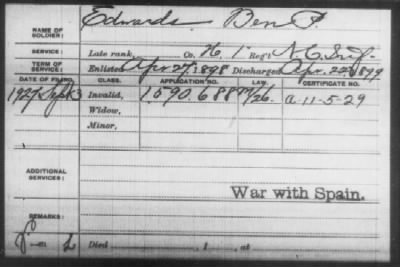 NAME OF SOLDIER: Edwards Ben F
SERVICE: Late rank, Co. H, 1 Reg't N.C. Inf.
TERM OF SERVICE: Enlisted Apr 27, 1898 Discharged Apr. 22, 1899
DATE OF FILING. CLASS. APPLICATION NO. LAW. CERTIFICATE NO.
1927 Sept 3 Invalid, 1,590,688 a-11-5-29
Widow,
Minor,
ADDITIONAL SERVICES:
War with Spain.
REMARKS:
Died , 1 , at